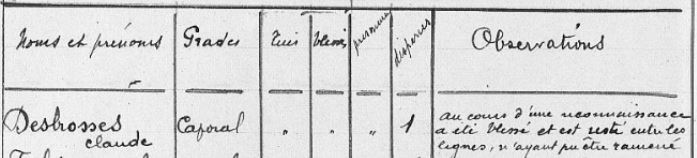 Noms et prénoms Grades tués blessés prisonniers disparus Observations
Desbrosses Caporal " " " 1 au cours d'une reconnaissance
claude a été blessé et est resté entre les
lignes, n'ayant pu être ramené